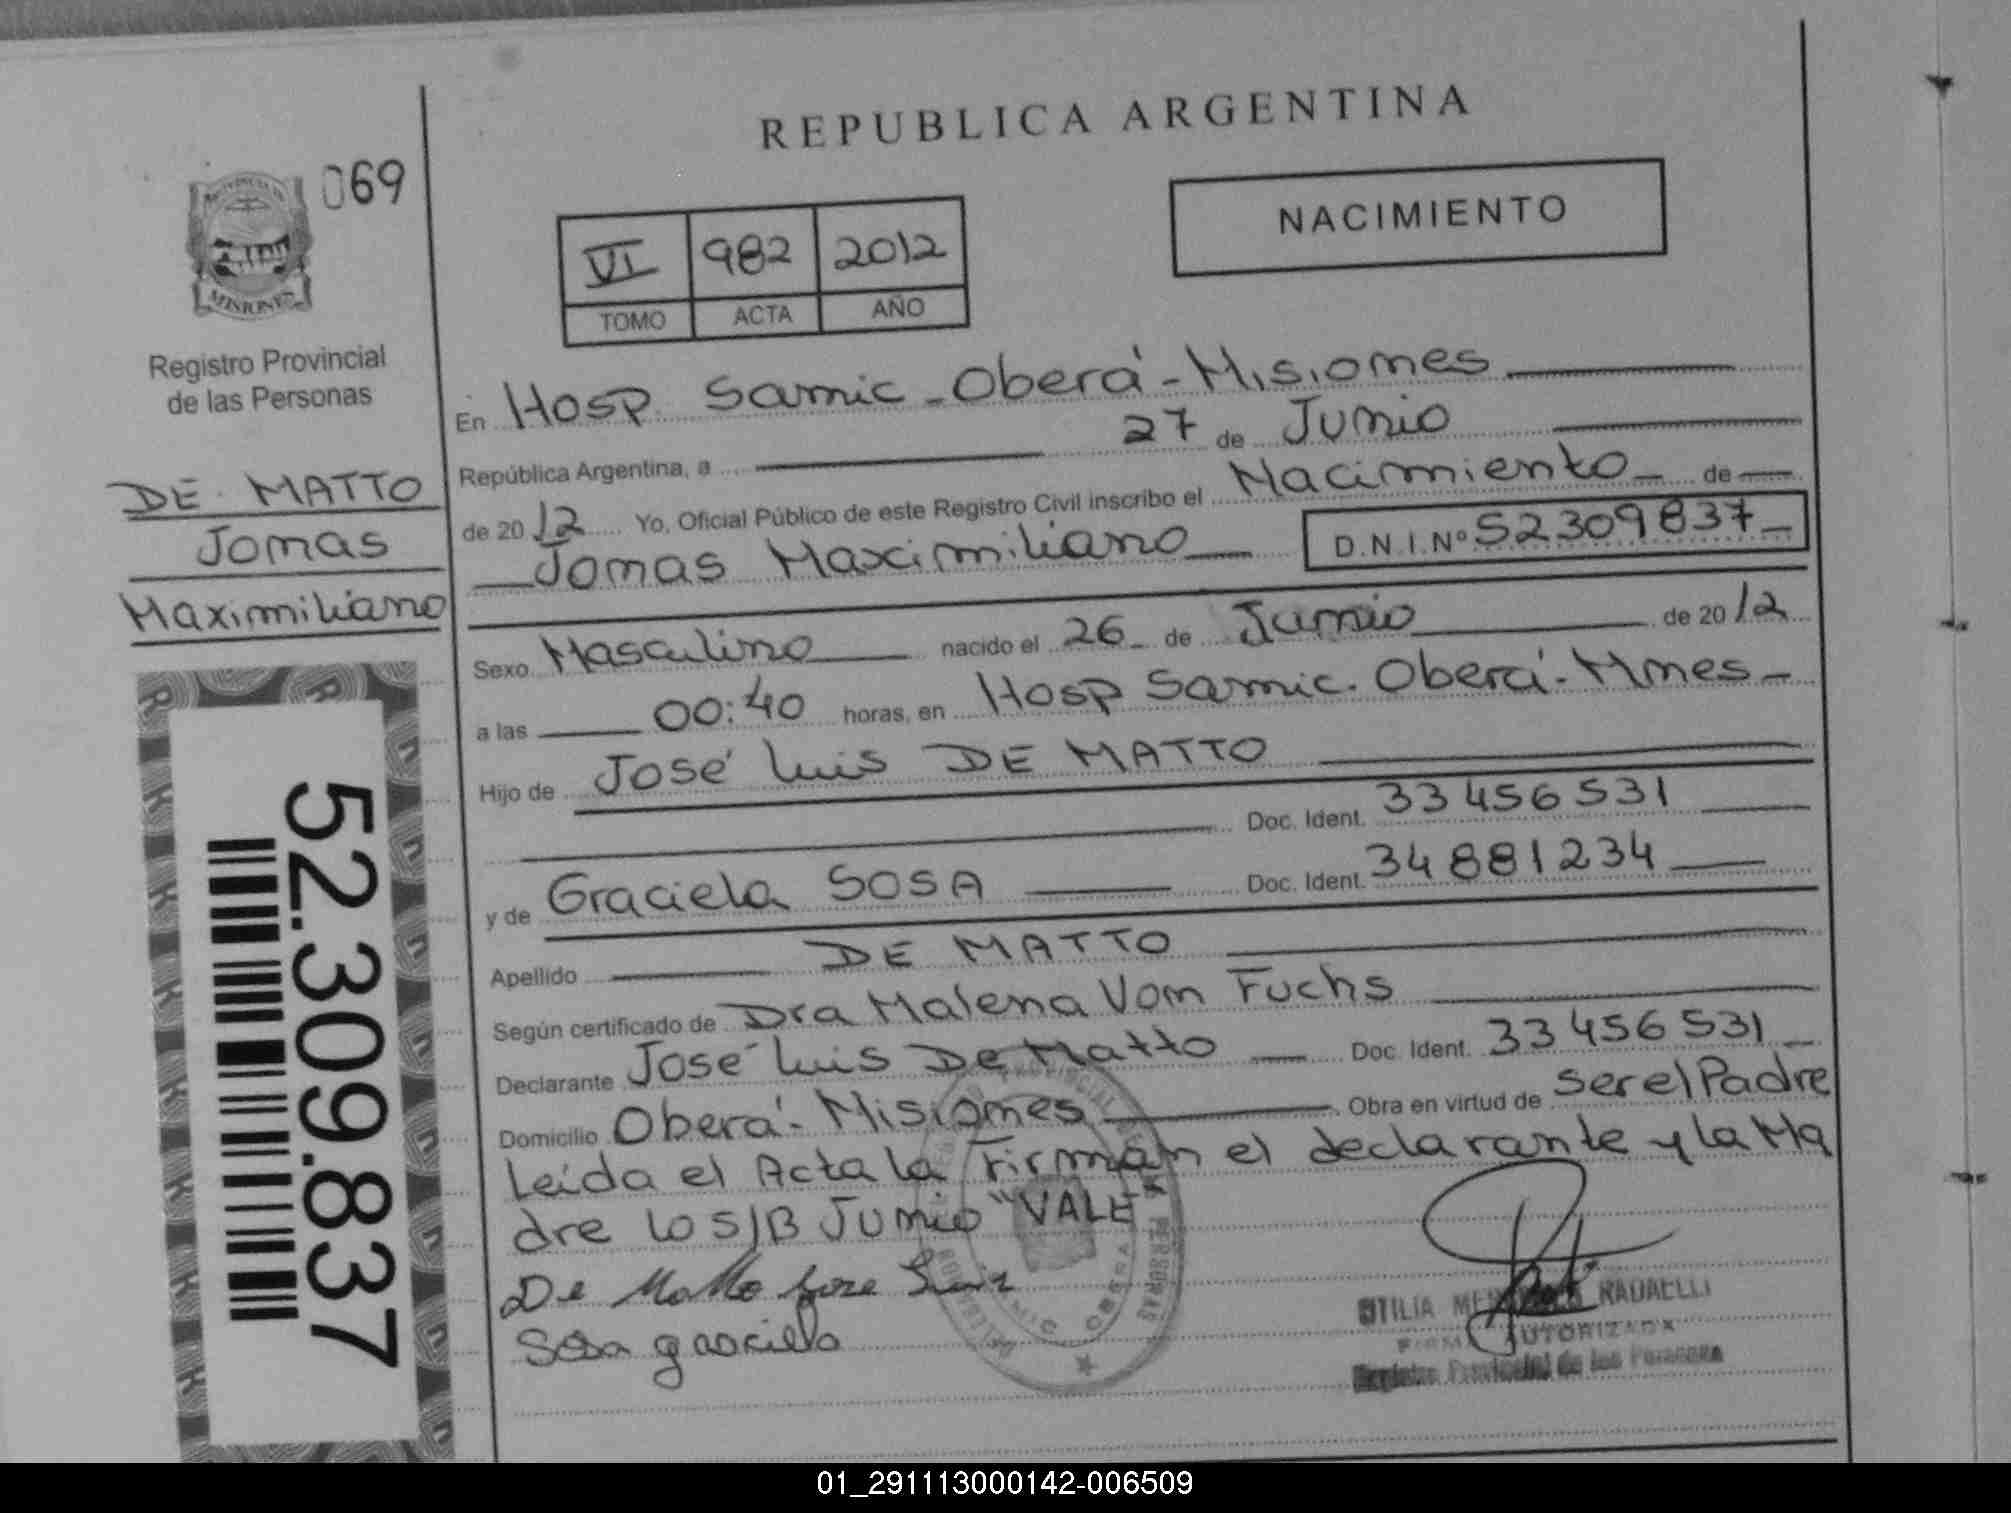 REPUBLICA ARGENTINA
069
PROVINCIA DE
MISIONES
Registro Provincial
de las Personas
NACIMIENTO
VI 982 2012
TOMO ACTA AÑO
DE MATTO
Jomas
Maximiliano
52.309.837
En Hosp. Samic - Oberá - Misiones
República Argentina, a 27 de Junio
de 2012 Yo, Oficial Público de este Registro Civil inscribo el Nacimiento de
Jomas Maximiliano D.N.I.Nº 52309837
Sexo Masculino nacido el 26 de Junio de 2012
a las 00:40 horas, en Hosp Samic. Oberá - Mnes
Hijo de José Luis DE MATTO
Doc. Ident. 33456531
y de Graciela SOSA Doc. Ident. 34881234
Apellido DE MATTO
Según certificado de Dra Malena Von Fuchs
Declarante José Luis De Matto Doc. Ident. 33456531
Domicilio Oberá - Misiones Obra en virtud de ser el Padre
Leída el Acta la Firman el declarante y la Ma
dre lo S/B Junio "VALE"
De Matto Jose Luis
Sosa graciela
OTILIA RADAELLI
FIRMA AUTORIZADA
Registro Provincial de las Personas
01_291113000142-006509